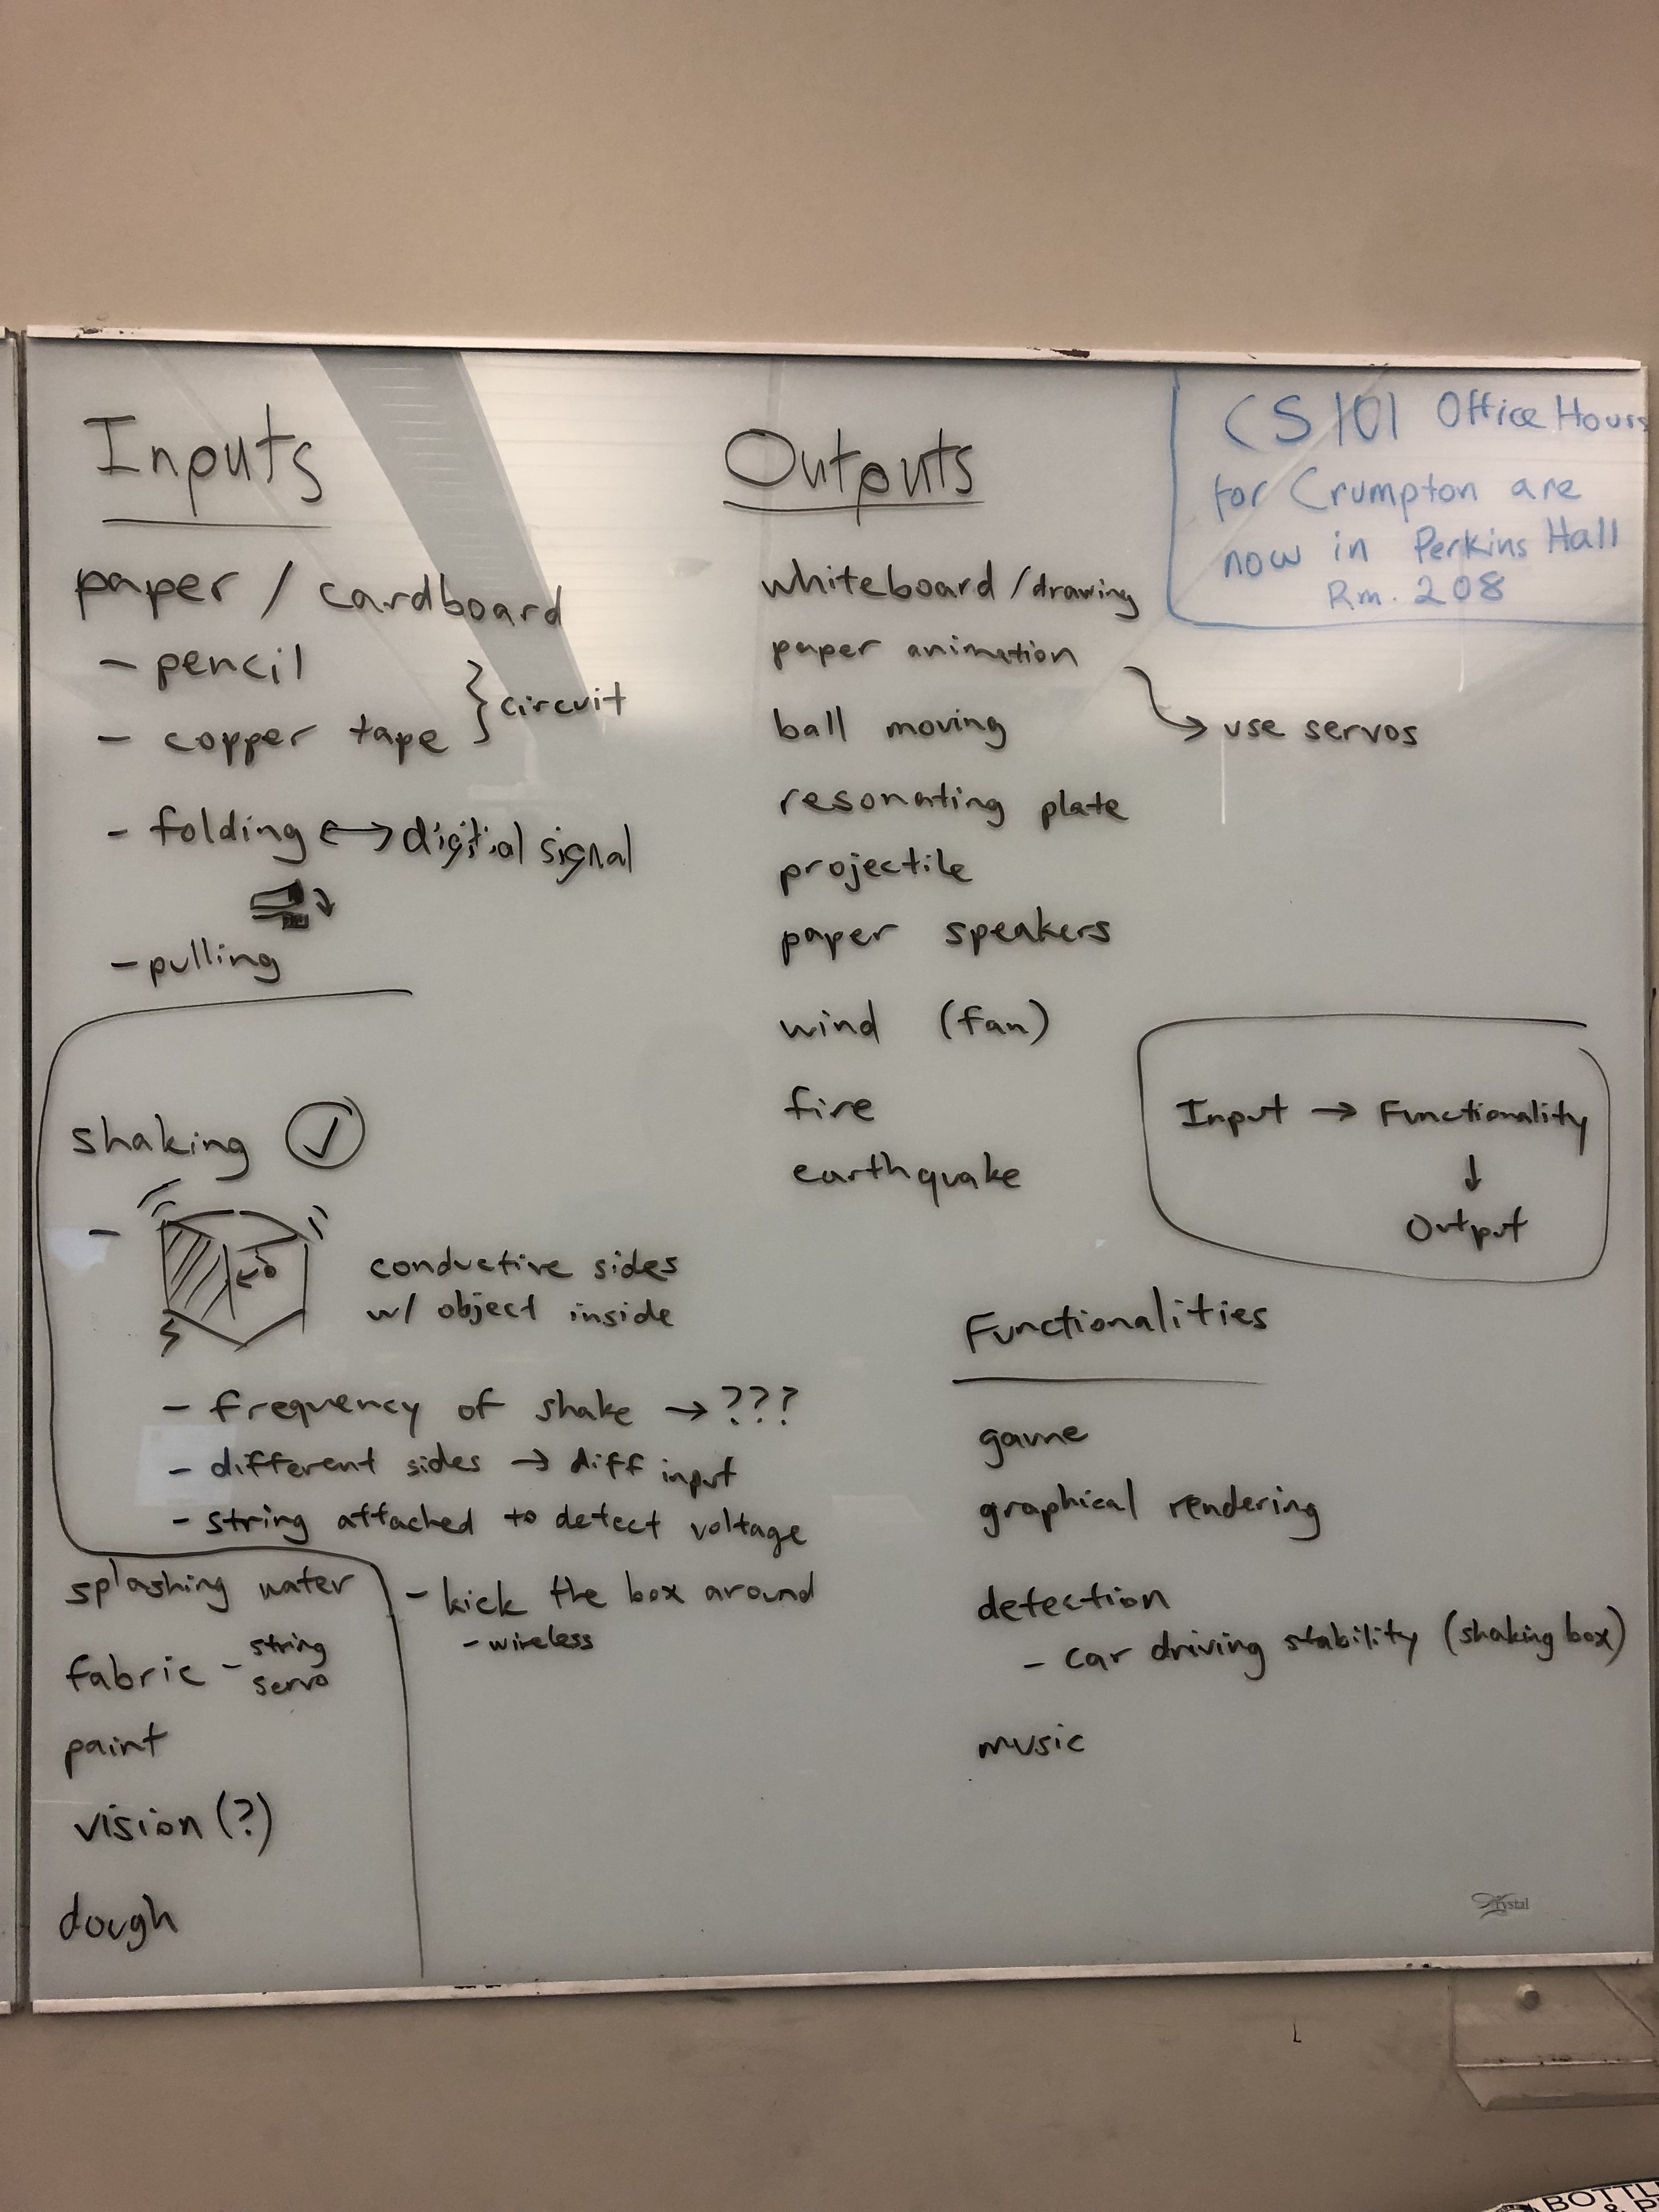 Inputs
paper / cardboard
- pencil
- copper tape } circuit
- folding ↔ digitial signal
- pulling
shaking ✓
-
conductive sides
w/ object inside
- frequency of shake → ???
- different sides → diff input
- string attached to detect voltage
- kick the box around
- wireless
splashing water
fabric - string
servo
paint
vision (?)
dough
Outputs
whiteboard / drawing
paper animation
→ use servos
ball moving
resonating plate
projectile
paper speakers
wind (fan)
fire
earthquake
CS 101 Office Hours
for Crumpton are
now in Perkins Hall
Rm. 208
Input → Functionality
↓
Output
Functionalities
game
graphical rendering
detection
- car driving stability (shaking box)
music
Crystal